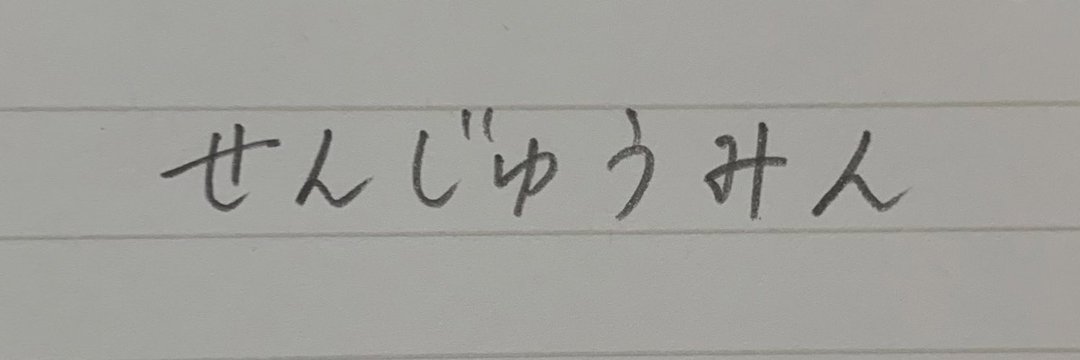 せんじゅうみん